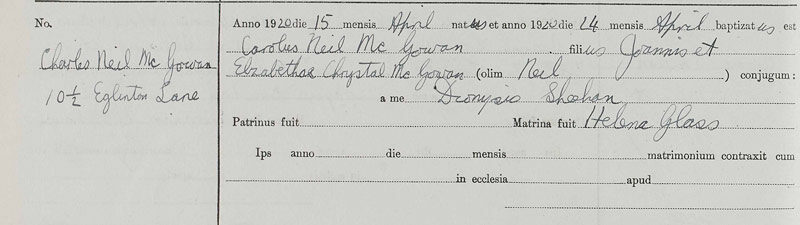 No.
Charles Neil Mc Gowan
10½ Eglinton Lane
Anno 1920 die 15 mensis April natus et anno 1920 die 24 mensis April baptizatus est
Carolus Neil Mc Gowan filius Joannis et
Elzabethae Chrystal Mc Gowan (olim Neil ) conjugum:
a me Dionysio Sheehan
Patrinus fuit Matrina fuit Helena Glass
Ips anno die mensis matrimonium contraxit cum
in ecclesia apud